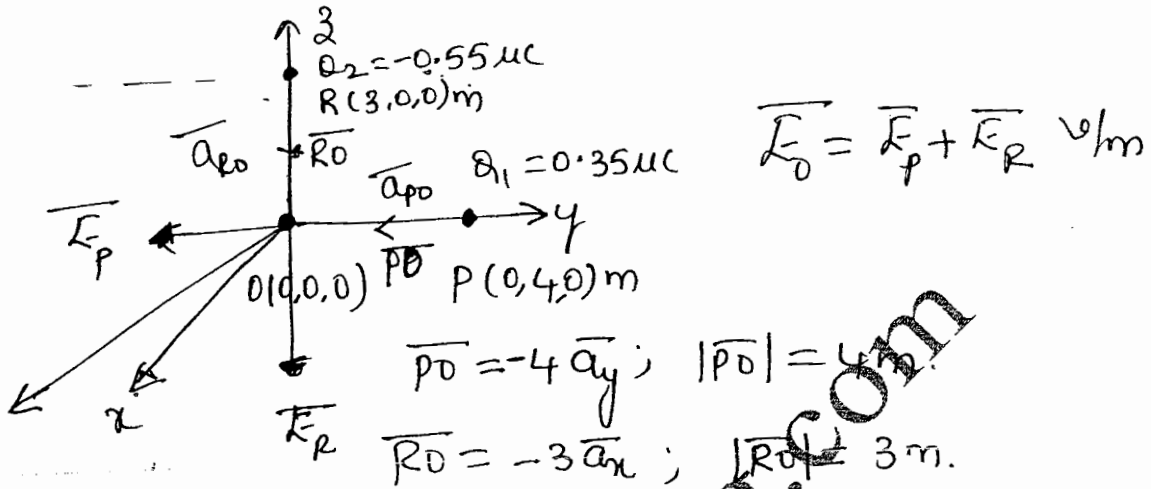 z
Q₂ = -0.55 μC
R(3,0,0)m
a̅_RO R̅O̅
a̅_PO Q₁ = 0.35 μC
E̅_O = E̅_P + E̅_R V/m
E̅_P
y
O(0,0,0) P̅O̅ P(0,4,0)m
P̅O̅ = -4 a̅_y ; |P̅O̅| = 4m.
x
E̅_R
R̅O̅ = -3 a̅_x ; |R̅O̅| = 3m.
.com